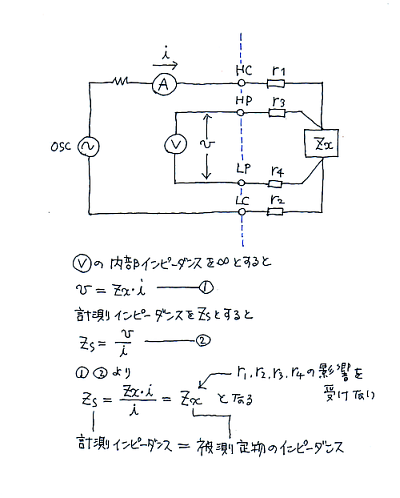 i
HC r1
A
HP r3
OSC V v Zx
LP r4
LC r2
Vの内部インピーダンスを∞とすると
v = Zx・i ①
計測インピーダンスをZsとすると
Zs = v/i ②
①②より r1, r2, r3, r4の影響を
受けない
Zs = Zx・i/i = Zx となる
計測インピーダンス = 被測定物のインピーダンス